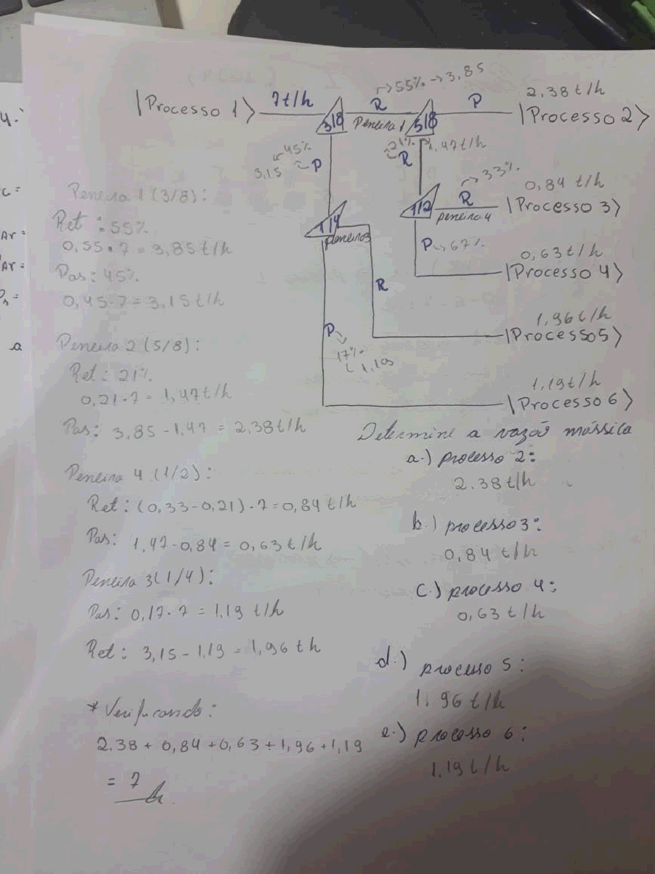 →55% → 3,85
|Processo 1⟩ 7t/h R P 2,38t/h
3/8 Peneira 1 5/8 |Processo 2⟩
45% 21% 1,47t/h
3,15 P R →33%
R 0,84 t/h
Peneira 1 (3/8): 1/4 1/2 peneira 4 |Processo 3⟩
Ret: 55% peneira 3 P→67%
0,55.7 = 3,85t/h 0,63t/h
Pas: 45% |Processo 4⟩
0,45.7 = 3,15t/h R
1,96t/h
P |Processo 5⟩
17%
1,19
Peneira 2 (5/8):
Ret: 21%
0,21.7 = 1,47t/h 1,19t/h
|Processo 6⟩
Pas: 3,85-1,47 = 2,38t/h
Peneira 4 (1/2):
Ret: (0,33-0,21).7=0,84t/h
Pas: 1,47-0,84=0,63t/h
Peneira 3(1/4):
Pas: 0,17.7 = 1,19 t/h
Ret: 3,15-1,19=1,96t h
*Verificando:
2,38+0,84+0,63+1,96+1,19
= 7
Determine a vazão mássica
a.) processo 2:
2.38t/h
b.) processo 3:
0,84 t/h
c.) processo 4:
0,63 t/h
d.) processo 5:
1.96 t/h
e.) processo 6:
1,19 t/h